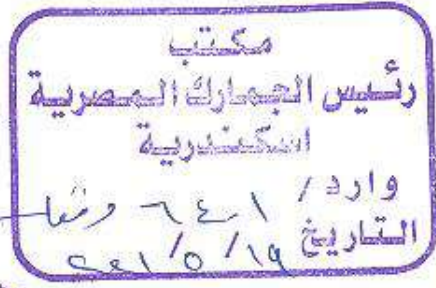 مكتب
رئيس الجمارك المصرية
اسكندرية
وارد / ٦٤٠١
التاريخ ١٩ / ٥ /